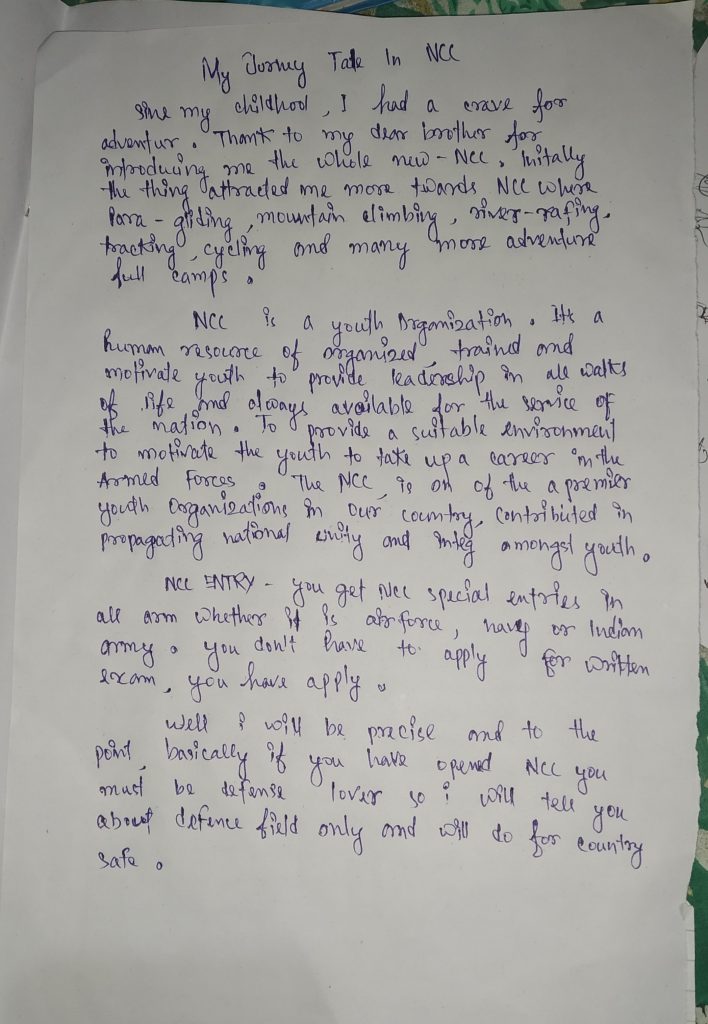 My Jorney Tale In NCC
Sine my childhood, I had a crave for
adventur. Thank to my dear brother for
introducing me the whole new - NCC. Initally
the thing attracted me more twards NCC where
Para - gliding, mountain climbing, river-rafing,
tracking, cycling and many more adventure
full camps.
NCC is a youth Organization. Its a
human resource of organized, traind and
motivate youth to provide leadership in all walks
of life and always available for the service of
the nation. To provide a suitable environment
to motivate the youth to take up a career in the
Armed Forces. The NCC, is on of the a premier
youth Organizations in our country, contributed in
propagating national unity and integ amongst youth.
NCC ENTRY - you get NCC special entries in
all arm whether it is airforce, navy or Indian
army. you don't have to apply for written
exam, you have apply.
Well i will be precise and to the
point, basically if you have opened NCC you
must be defense lover so i will tell you
about defence field only and will do for country
safe.